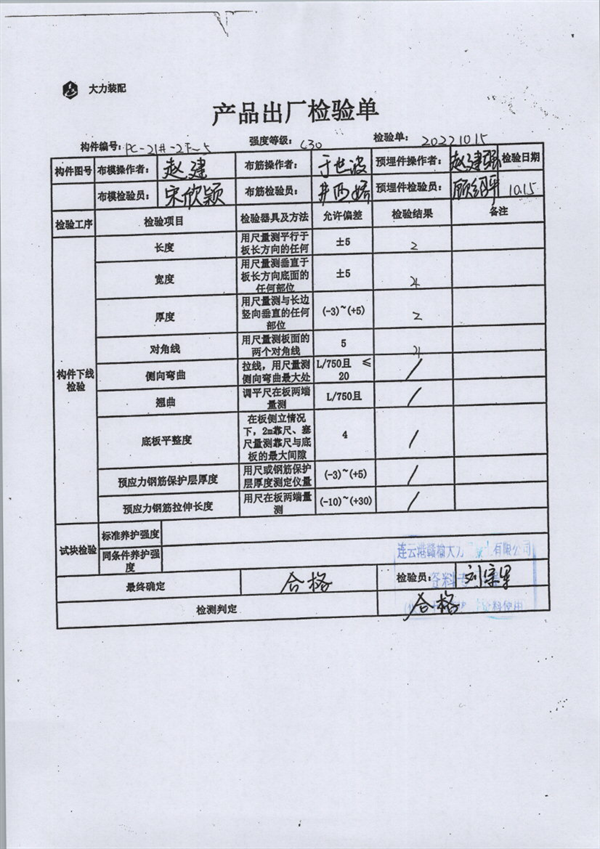 大力装配
产品出厂检验单
构件编号: PC-21#-2F-5 强度等级: C30 检验单: 20221015
构件图号 布模操作者: 赵建 布筋操作者: 于世波 预埋件操作者: 赵建强 检验日期
布模检验员: 宋欣颖 布筋检验员: 预埋件检验员: 1015
检验工序 检验项目 检验器具及方法 允许偏差 检验结果 备注
构件下线检验
长度 用尺量测平行于板长方向的任何 ±5 2
宽度 用尺量测垂直于板长方向底面的任何部位 ±5
厚度 用尺量测与长边竖向垂直的任何部位 (-3)~(+5) 2
对角线 用尺量测板面的两个对角线 5
侧向弯曲 拉线,用尺量测侧向弯曲最大处 L/750且 ≤20 /
翘曲 调平尺在板两端量测 L/750且 /
底板平整度 在板侧立情况下,2m靠尺、塞尺量测靠尺与底板的最大间隙 4 /
预应力钢筋保护层厚度 用尺或钢筋保护层厚度测定仪量 (-3)~(+5) /
预应力钢筋拉伸长度 用尺在板两端量测 (-10)~(+30) /
试块检验 标准养护强度
同条件养护强度
最终确定 合格 检验员:
检测判定 合格